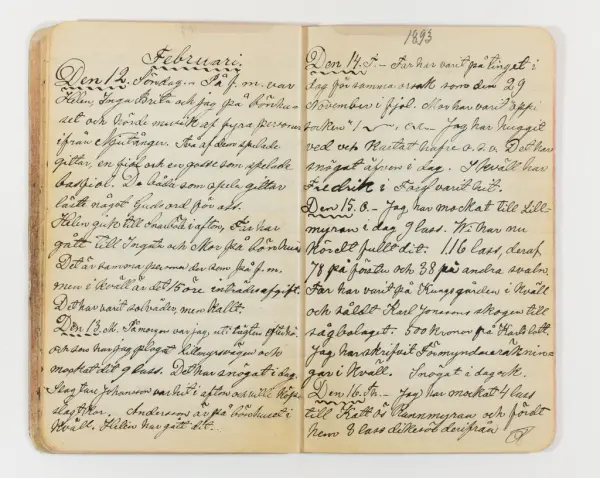 Februari.
Den 12. Söndag. På f. m. var
Helen, Inga Brita och jag på bönhu-
set och hörde musik af fyra personer
ifrån Njutånger. Två af dem spelade
gitarr, en fiol och en gosse som spelade
basfiol. De båda som spela gitarr
läste något Guds ord för oss.
Helin gick till i afton, Far har
gått till Ingata och Mor på bönhuset
Det är samma personer der som på f. m.
men i kväll är det 15 öre enträdesafgift.
Det har varit solväder, men kallt.
Den 13. M. På morgon var jag uti täkten efter hö.
och sen har jag plogat lillmyrsvägen och
mockat dit 9 lass. Det har snögat i dag.
Johansson var hit i afton och ville köpa
Andersson är på bönhuset i
kväll. Helin har gått dit.
1893
Den 14. T. - Far har varit på tinget i
dag för samma orsak som den 29
November i fjol. Mor har varit öppi
socken Jag har huggit
ved och hackat hafre o. s. v. Det har
snögat äfven i dag. I kväll har
Fredrik i varit hit.
Den 15. O. - Jag har mockat till Lill-
myran i dag 9 lass. Vi har nu
kördt fullt dit. 116 lass, deraf
78 på första och 38 på andra svaln.
Far har varit på Kungsgården i kväll
och såldt Karl Jonssons skogen till
sågbolaget. 500 kronor på Karls lott.
Jag har skrifvit Förmyndareräknin-
gar i kväll. Snögat i dag ock.
Den 16. Th. - Jag har mockat 4 lass
till och fördt
hem 3 lass dikesöt derifrån